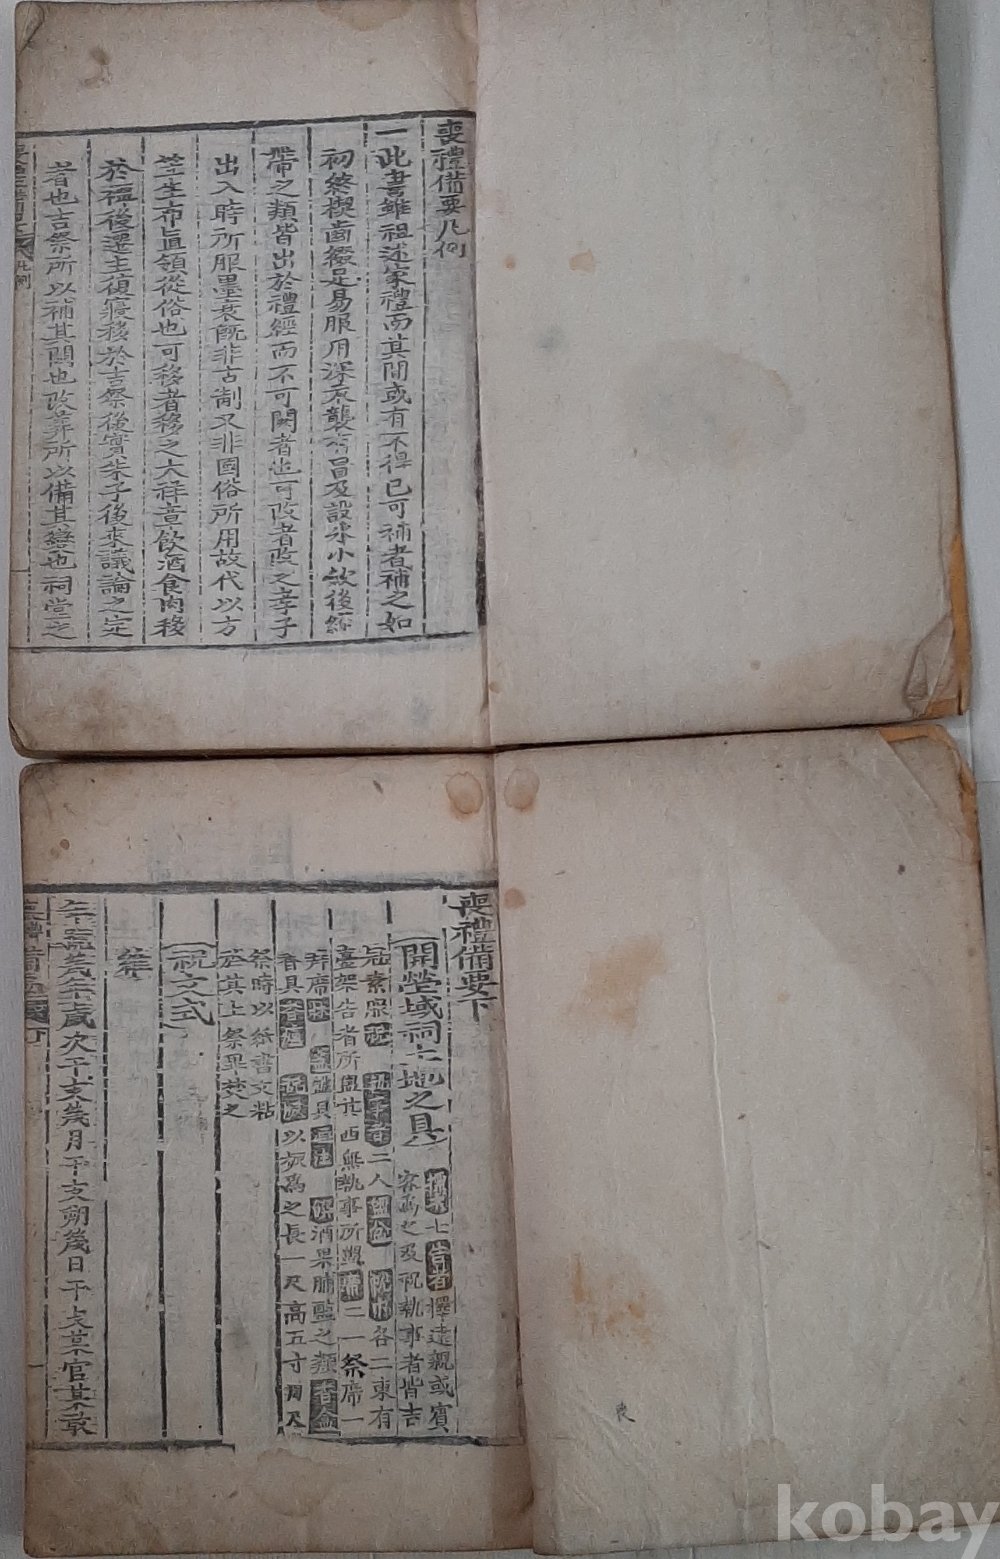 喪禮備要凡例
一此書雖祖述家禮而其間或有不得已可補者補之如
初終楔齒綴足易服用深衣襲冒及設氷小斂後絰
帶之類皆出於禮經而不可闕者也可改者改之孝子
出入時所服墨衰旣非古制又非國俗所用故代以方
笠生布直領從俗也可移者移之大祥章飮酒食肉移
於禫後遷主禎寢移於吉祭後實朱子後來議論之定
者也吉祭所以補其闕也改葬所以備其變也祠堂之
凡例
喪禮備要下
開塋域祠土地之具
七告者擇遠親或賓
客爲之及祝執事者皆吉
冠素服 執事者二人 各二東有
臺架告者所盥其西無執事所盥 二一祭席一
拜席 饌具 酒果脯醢之類
香具 以板爲之長一尺高五寸周尺
祭時以紙書文粘
於其上祭畢焚之
祝文式
維
年號幾年歲次干支幾月干支朔幾日干支某官某敢
喪禮備要 下
喪
kobay